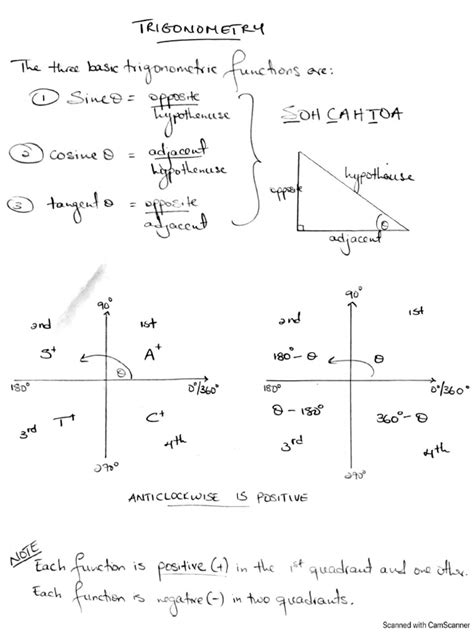 TRIGONOMETRY
The three basic trigonometric functions are:
① Sine θ = opposite / hypothenuse
② cosine θ = adjacent / hypothenuse
③ tangent θ = opposite / adjacent
SOH CAHTOA
opposite
hypothenuse
θ
adjacent
90°
2nd 1st
S+ A+
θ
180° 0°/360°
T+ C+
3rd 4th
270°
90°
2nd 1st
180° - θ θ
180° 0°/360°
θ - 180° 360° - θ
3rd 4th
270°
ANTICLOCKWISE IS POSITIVE
NOTE
Each function is positive (+) in the 1st quadrant and one other.
Each function is negative (-) in two quadrants.
Scanned with CamScanner